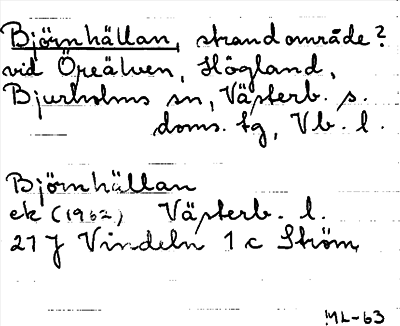 Björnhällan, strandområde?
vid Öreälven, Högland,
Bjurholms sn, Västerb. s.
doms. tg, Vb. l.
Björnhällan
ek (1962) Västerb. l.
21 J Vindeln 1 c Ström
ML-63